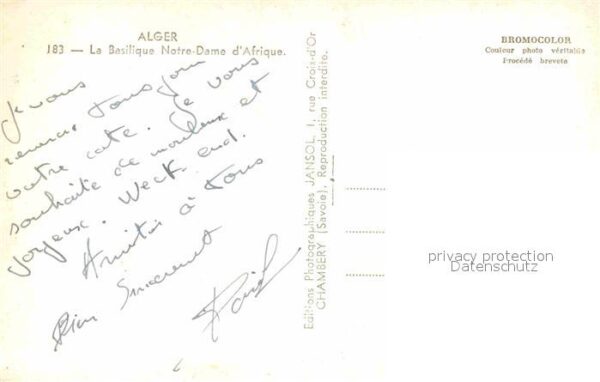 ALGER
183 — La Basilique Notre-Dame d'Afrique.
BROMOCOLOR
Couleur photo véritable
Procédé breveté
Je vous
remercie tous pour
votre carte. Je vous
souhaite de
joyeux. Week end.
Amitié à tous
Bien Sincèrement
Editions Photographiques JANSOL, 1, rue Croix-d'Or
CHAMBERY (Savoie), Reproduction interdite.
privacy protection
Datenschutz